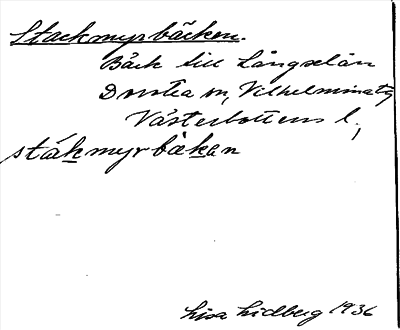 Stackmyrbäcken.
Bäck till Långselån
Dorotea sn, Vilhelmina tg
Västerbottens l.,
stákmyrbäkan
Lisa Lidberg 1936